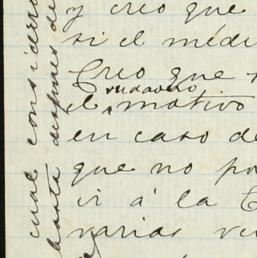 y creo que
si el médi
Creo que
verdadero
el motivo
en caso de
que no po
ir á la C
varias ve
cual considero
hasta despues de